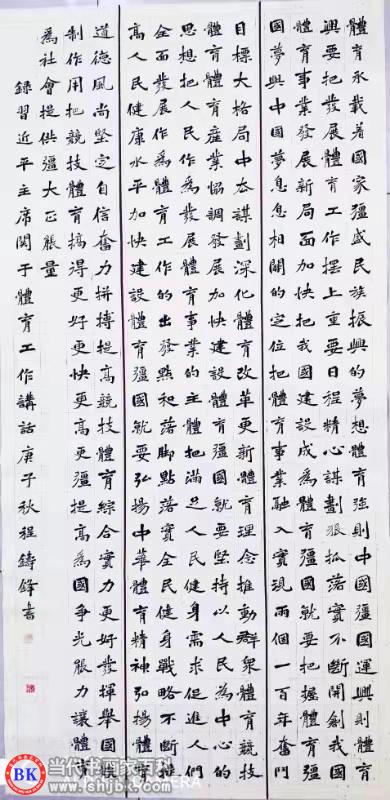 體育承載着國家彊盛民族振興的夢想體育強則中國彊國運興體育
興要把體育工作擺上重要日程精心謀劃狠抓落實不斷開創我國
體育事業發展新局面加快把我國建設成為體育彊國就要把握體育彊
國夢與中國夢息息相關的定位把體育事業融入實現兩個一百年奮鬥
目標大格局中去謀劃深化體育改革更新體育理念推動群眾體育競技
體育體育產業協調發展加快建設體育彊國就要堅持以人民為中心的
思想把人民作為發展體育事業的主體把滿足人民健身需求促進人們
全面發展作為體育工作的出發點和落脚點落實全民健身戰略不斷提
高人民健康水平加快建設體育彊國就要弘揚中華體育精神弘揚體育
道德風尚堅定自信奮力拼搏提高競技體育綜合實力更好發揮舉國體
制作用把競技體育搞得更好更快更高更彊提高為國爭光能力讓體育
為社會提供彊大正能量
錄習近平主席関于體育工作講話庚子秋程鑄鋒書
BK
当代书画家百科
www.shjbk.com